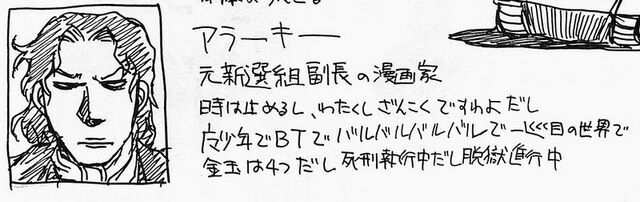 アラーキー
元新選組副長の漫画家
時は止めるし、わたくしざんこくですわよだし
魔少年でBTでバルバルバルバルで一巡目の世界で
金玉は4つだし 死刑執行中だし脱獄進行中